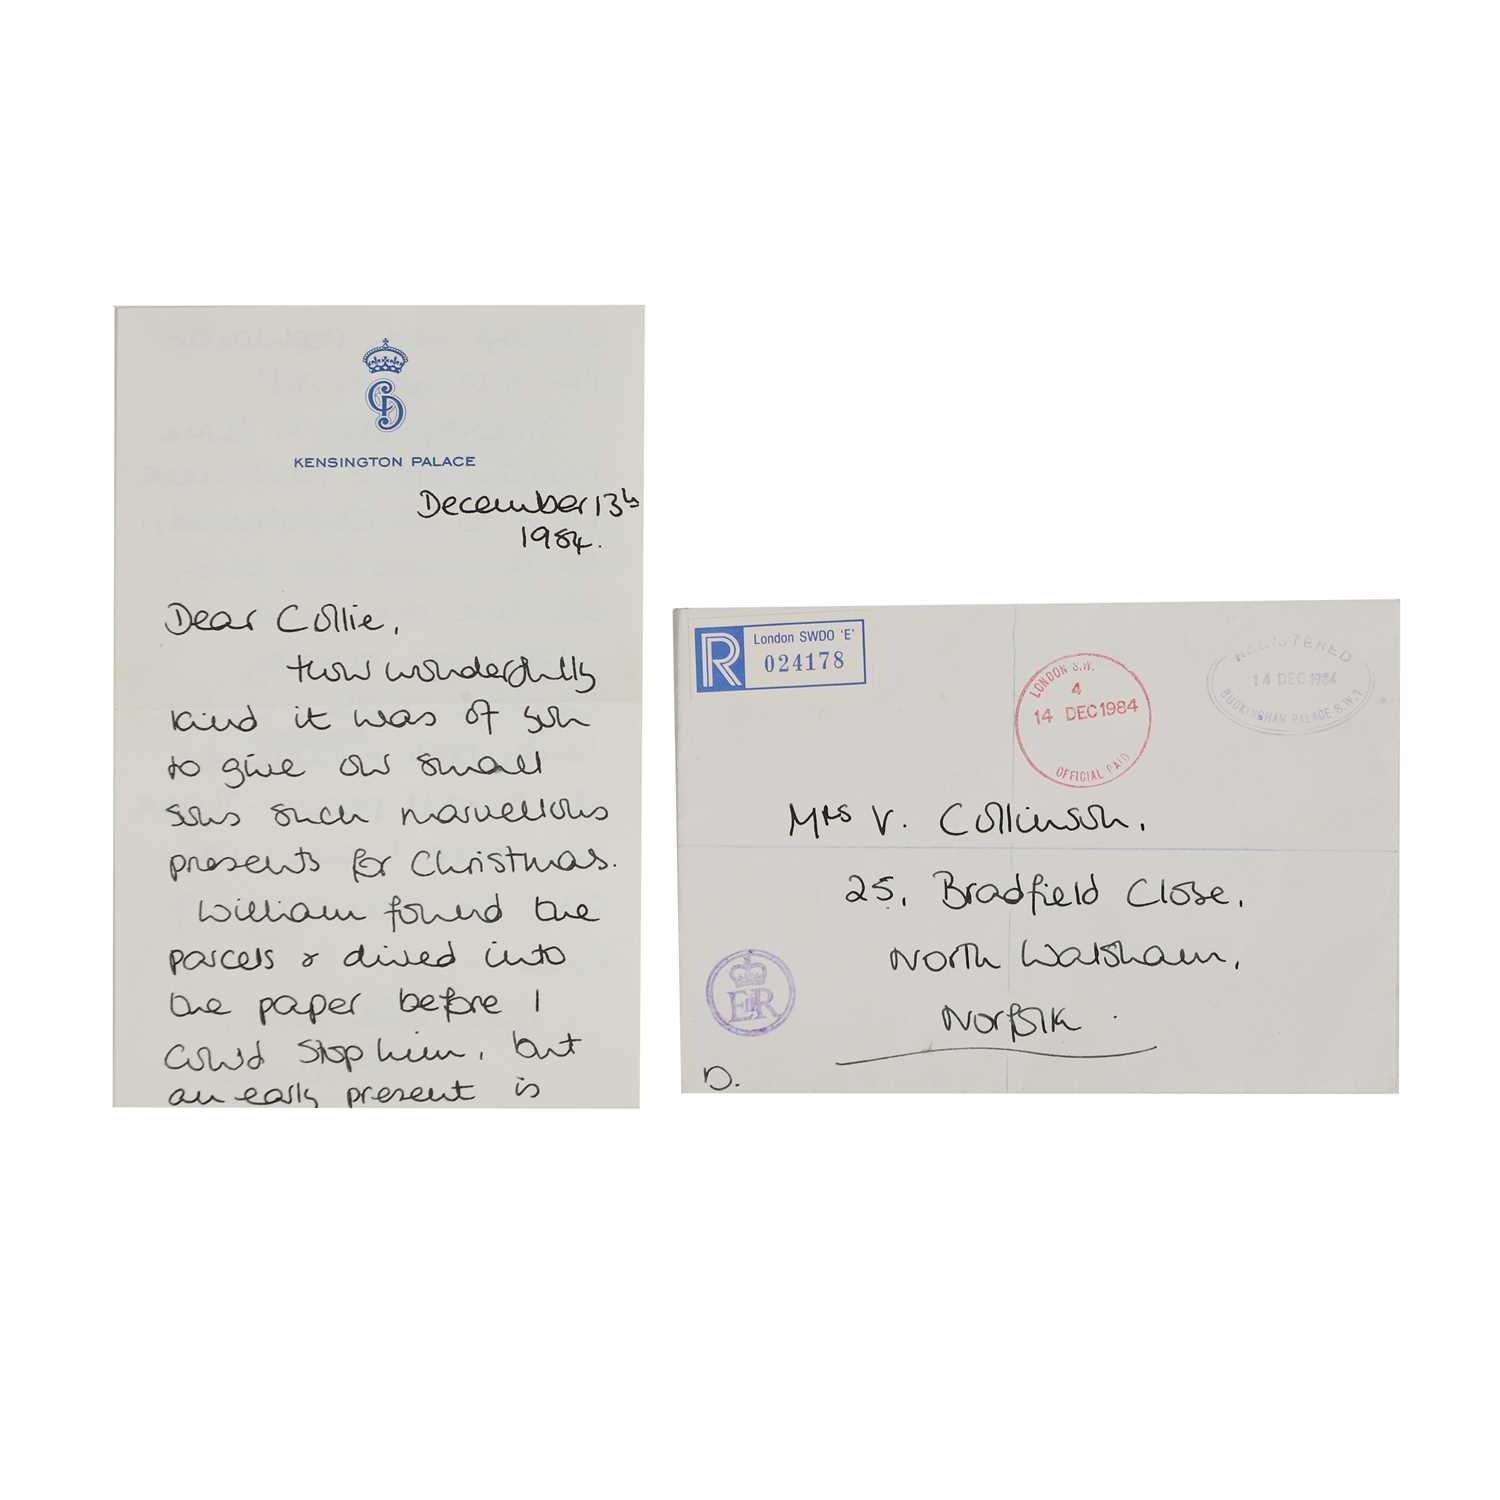 KENSINGTON PALACE
December 13th
1984.
Dear Collie,
How wonderfully
kind it was of you
to give our small
sons such marvellous
presents for Christmas.
William found the
parcels & dived into
the paper before I
could stop him, but
an early present is
R
London SWDO 'E'
024178
LONDON S.W.
4
14 DEC 1984
OFFICIAL PAID
REGISTERED
14 DEC 1984
BUCKINGHAM PALACE S.W.1
Mrs V. Collinson,
25, Bradfield Close,
North Walsham,
Norfolk.
EIIR
D.